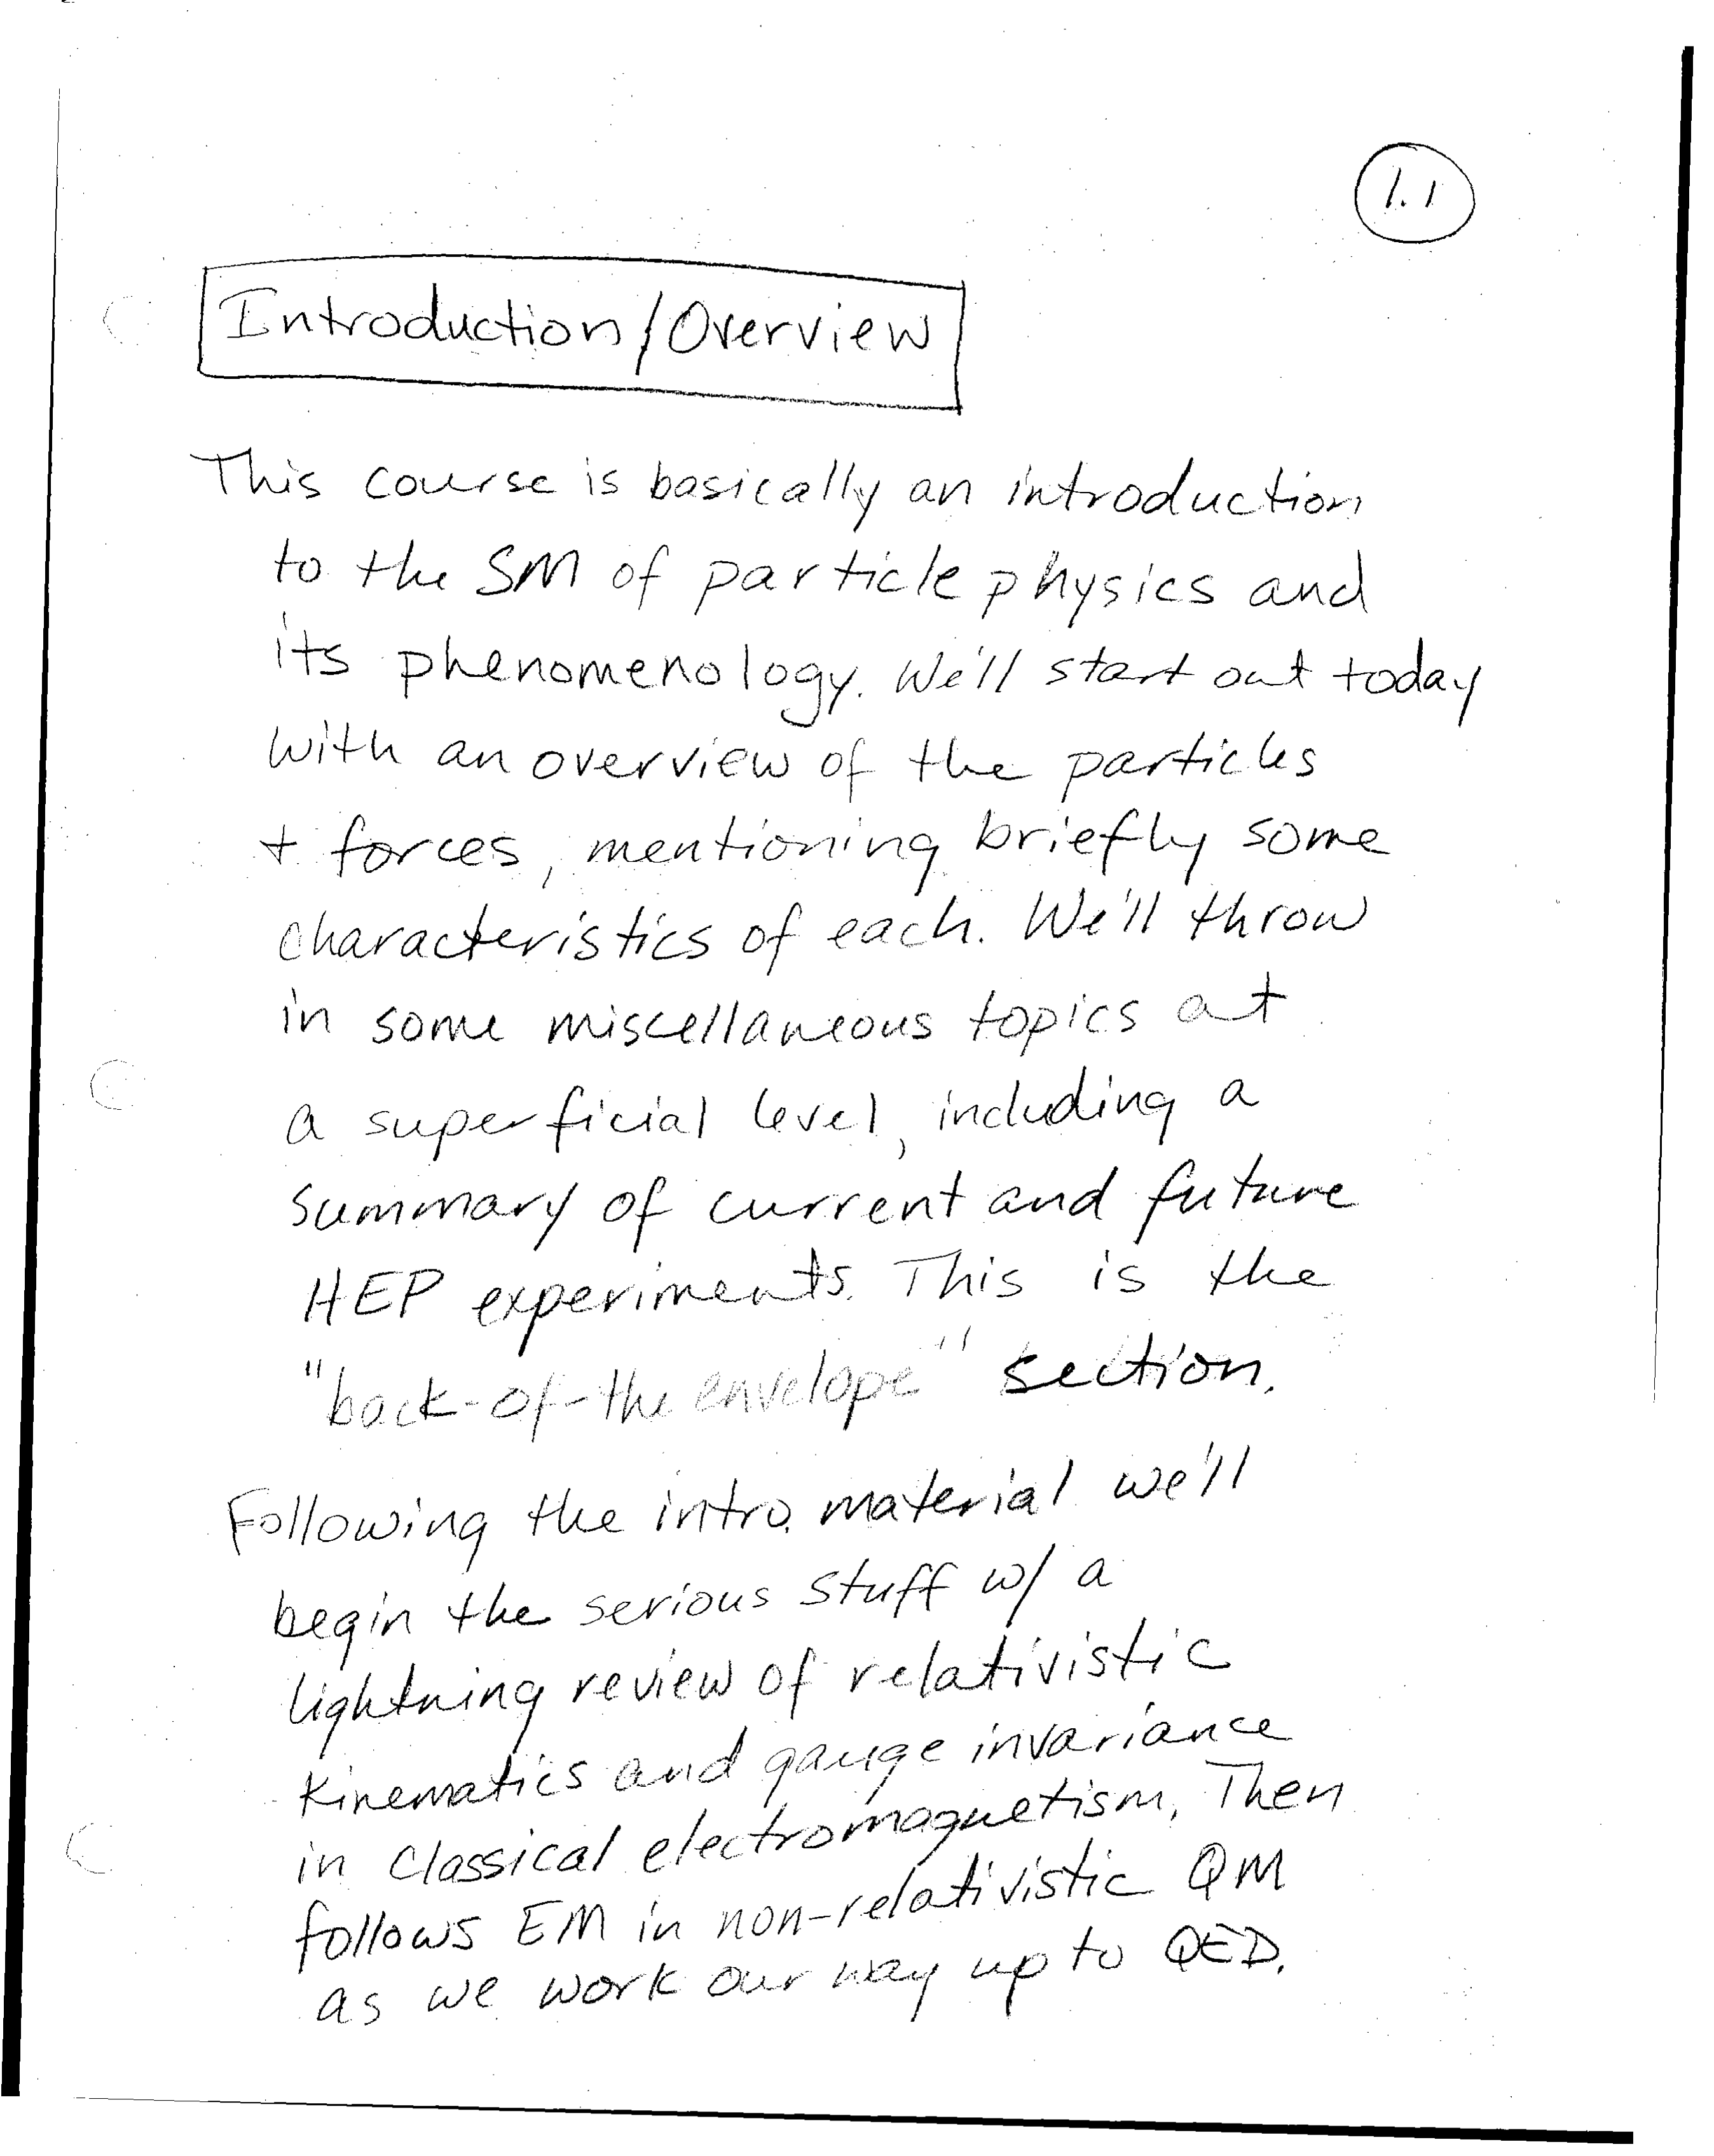 1.1
Introduction/Overview
This course is basically an introduction
to the SM of particle physics and
its phenomenology. We'll start out today
with an overview of the particles
+ forces, mentioning briefly some
characteristics of each. We'll throw
in some miscellaneous topics at
a superficial level, including a
summary of current and future
HEP experiments. This is the
"back-of-the envelope" section.
Following the intro. material we'll
begin the serious stuff w/ a
lightning review of relativistic
kinematics and gauge invariance
in classical electromagnetism. Then
follows EM in non-relativistic QM
as we work our way up to QED.